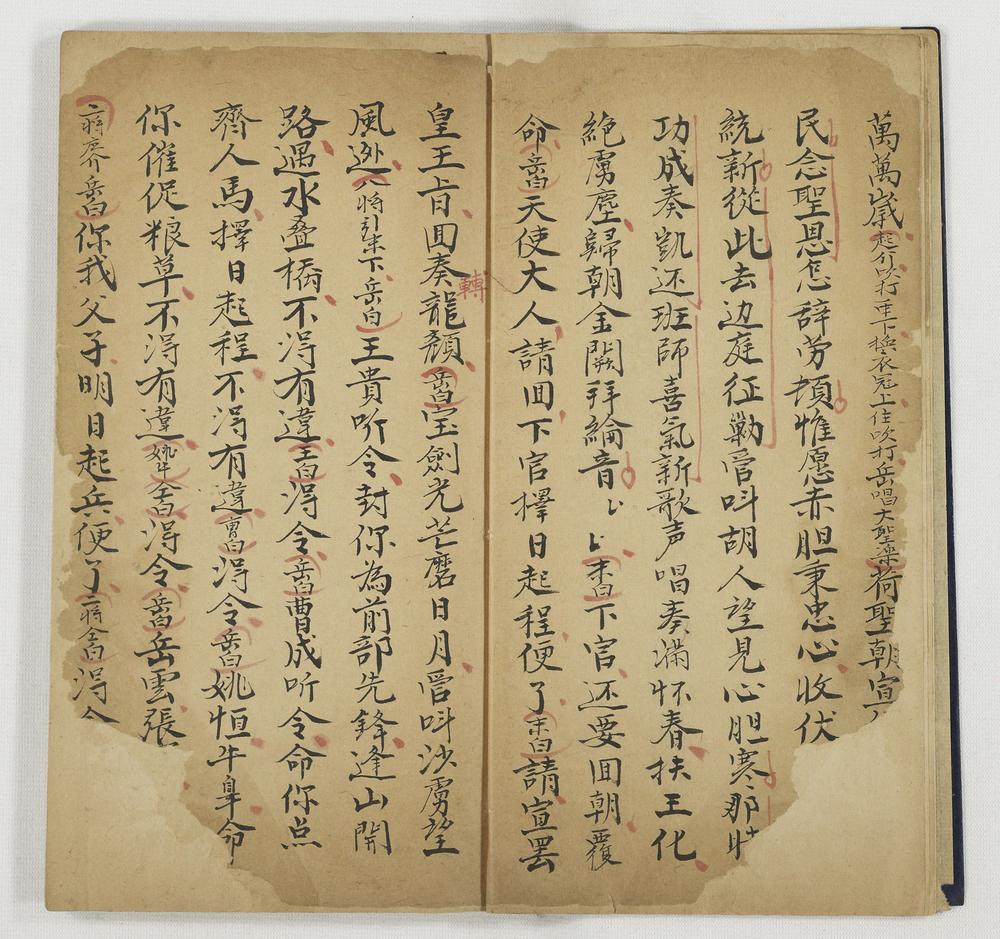 萬萬歲起介吹打重下換衣冠上住吹打岳唱大聖樂荷聖朝宣
民念聖恩怎辞劳頓惟愿赤胆秉忠心收伏
統新從此去边庭征勦管呌胡人望見心胆寒那時
功成奏凱还班师喜氣新歌声唱奏满怀春扶王化
絶虏塵歸朝金闕拜綸音上上末白下官还要回朝覆
命岳白天使大人請回下官擇日起程便了末白請宣罢
皇王旨回奏龍顏岳白宝劍光芒磨日月管呌沙虏望
轉
風迯八将引末下岳白王貴听令封你為前部先鋒逢山開
路遇水叠橋不淂有違王白淂令岳白曹成听令命你点
齊人馬擇日起程不淂有違曹白淂令岳白姚恒牛皐命
你催促粮草不淂有違姚牛仝白淂令岳白岳雲張
二将齐岳白你我父子明日起兵便了二将仝白淂令